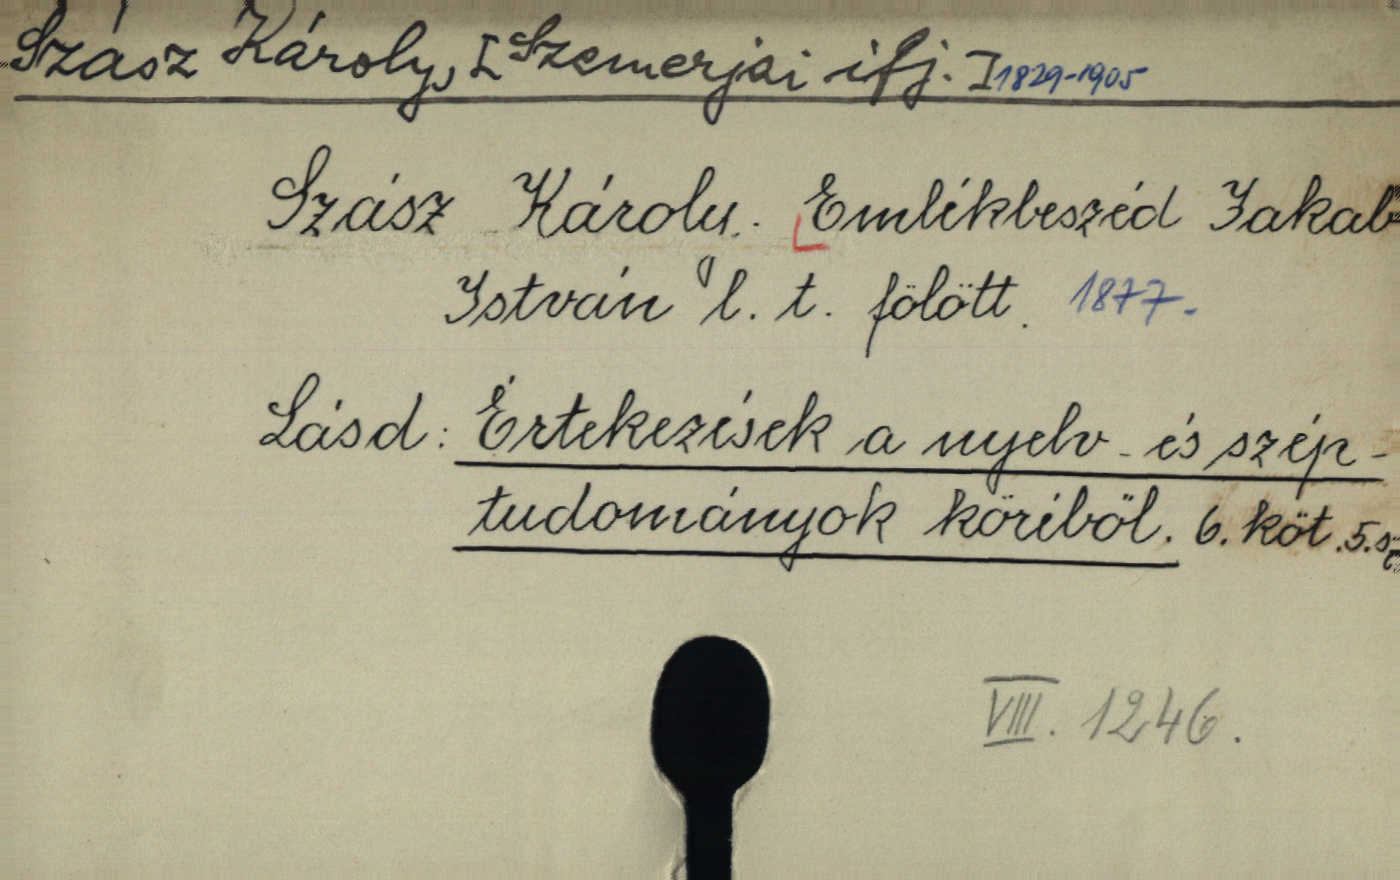 Szász Károly, [Szemerjai ifj.] 1829-1905
Szász Károly. Emlékbeszéd Jakab
István l. t. fölött. 1877.
Lásd: Értekezések a nyelv- és szép-
tudományok köréből. 6. köt. 5. sz
VIII. 1246.